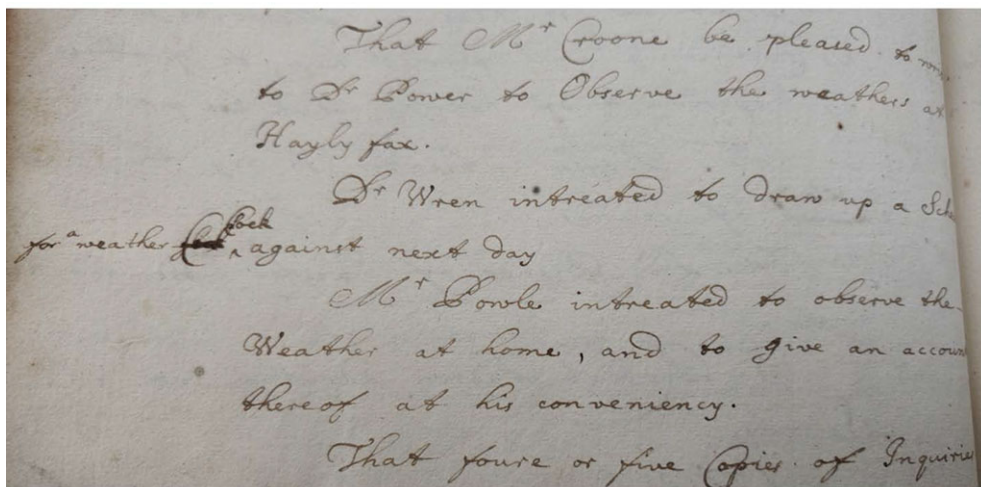 That Mr Croone be pleased to
to Dr Power to Observe the weathers at
Hayly fax.
Dr Wren intreated to draw up a
for a weather Clock against next day
Mr Powle intreated to observe the
Weather at home, and to give an accoun
thereof at his conveniency.
That foure or five Copies of Inquirie